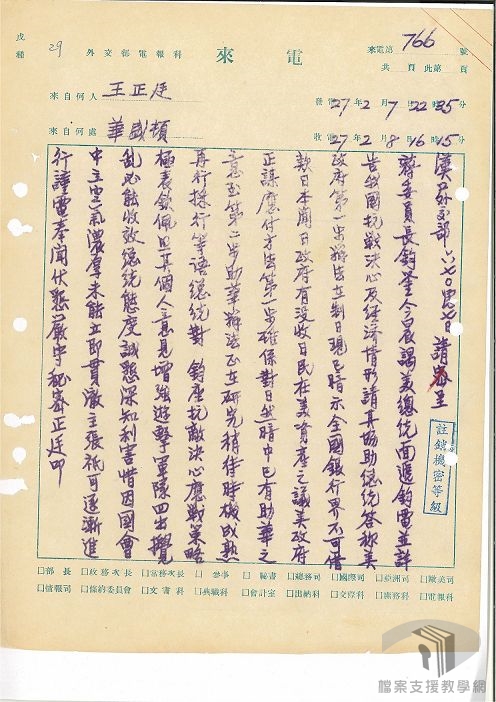 戊種
29
外交部電報科
來電
來電第 766 號
共 頁此第 頁
來自何人 王正廷
來自何處 華盛頓
發電27年2月7日22時35分
收電27年2月8日16時15分
漢口外交部六七〇號七日請譯呈
蔣委員長鈞鑒今晨謁美總統面遞鈞電並詳
告我國抗戰決心及經濟情形請其協助總統答稱美
政府第一步辦法立對日現已暗示全國銀行界不可借
款日本聞日政府有沒收日民在美資產之議美政府
正謀應付方法第一步確係對日然暗中已有助華之
意至第二步助華辦法正在研究稍待時機成熟
再行採行等語總統對 鈞座抗敵決心應戰策略
極表欽佩但其個人意見增強游擊軍隊四出擾
亂必能收效總統態度誠懇深知利害惜因國會
中主和空氣濃厚未能立即貫澈主張祇可逐漸進
行謹電奉聞伏懇嚴守秘密正廷叩
註銷機密等級
□部長 □政務次長 □常務次長 □參事 □秘書 □總務司 □國際司 □亞洲司 □歐美司
□情報司 □條約委員會 □文書科 □典職科 □會計室 □出納科 □交際科 □庶務科 □電報科
檔案支援教學網